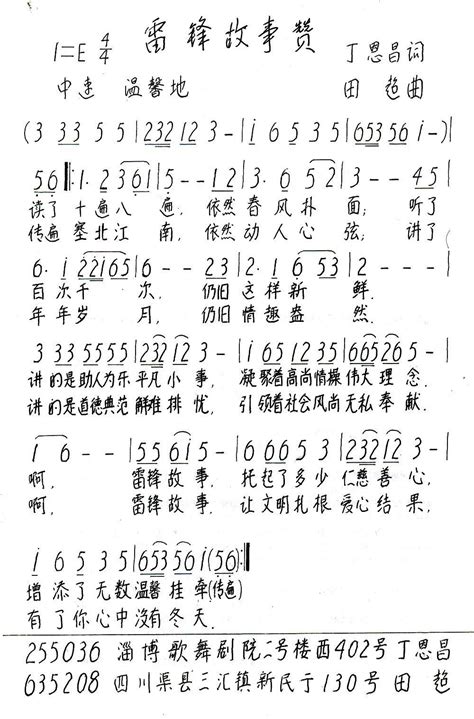 雷锋故事赞
1=E 4/4 丁恩昌词
中速 温馨地 田超曲
(3 33 5 5|232 12 3-|i 6 5 3 5|653 56 i-)|
56‖:1· 2 361|5--12|3· 6 52|3--45|
读了十遍八遍,依然春风扑面;听了
传遍塞北江南,依然动人心弦;讲了
6· i 22165|6--23|2· 1 6 53|2---|
百次千次,仍旧这样新鲜.
年年岁月,仍旧情趣盎然.
3 33 5555|232 12 3-|i 65 12 35|665265-|
讲的是助人为乐平凡小事,凝聚着高尚情操伟大理念.
讲的是道德典范解难排忧,引领着社会风尚无私奉献.
i 6--|55 61 5-|6 66 5 3|232 12 3-|
啊,雷锋故事,托起了多少仁慈善心,
啊,雷锋故事,让文明扎根爱心结果,
i 6 5 3 5|653 56 i(56):‖
增添了无数温馨挂牵(传遍)
有了你心中没有冬天.
255036 淄博歌舞剧院二号楼西402号丁恩昌
635208 四川渠县三汇镇新民于130号 田超